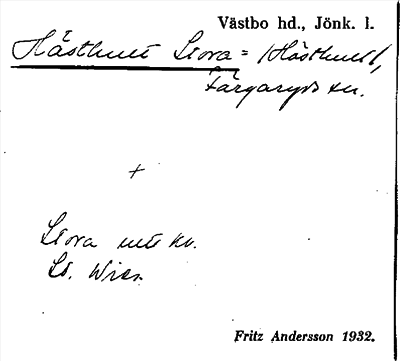 Västbo hd., Jönk. l.
Hästhult Stora = Hästhult,
Färgaryds sn.
+
Stora
St.
Fritz Andersson 1932.